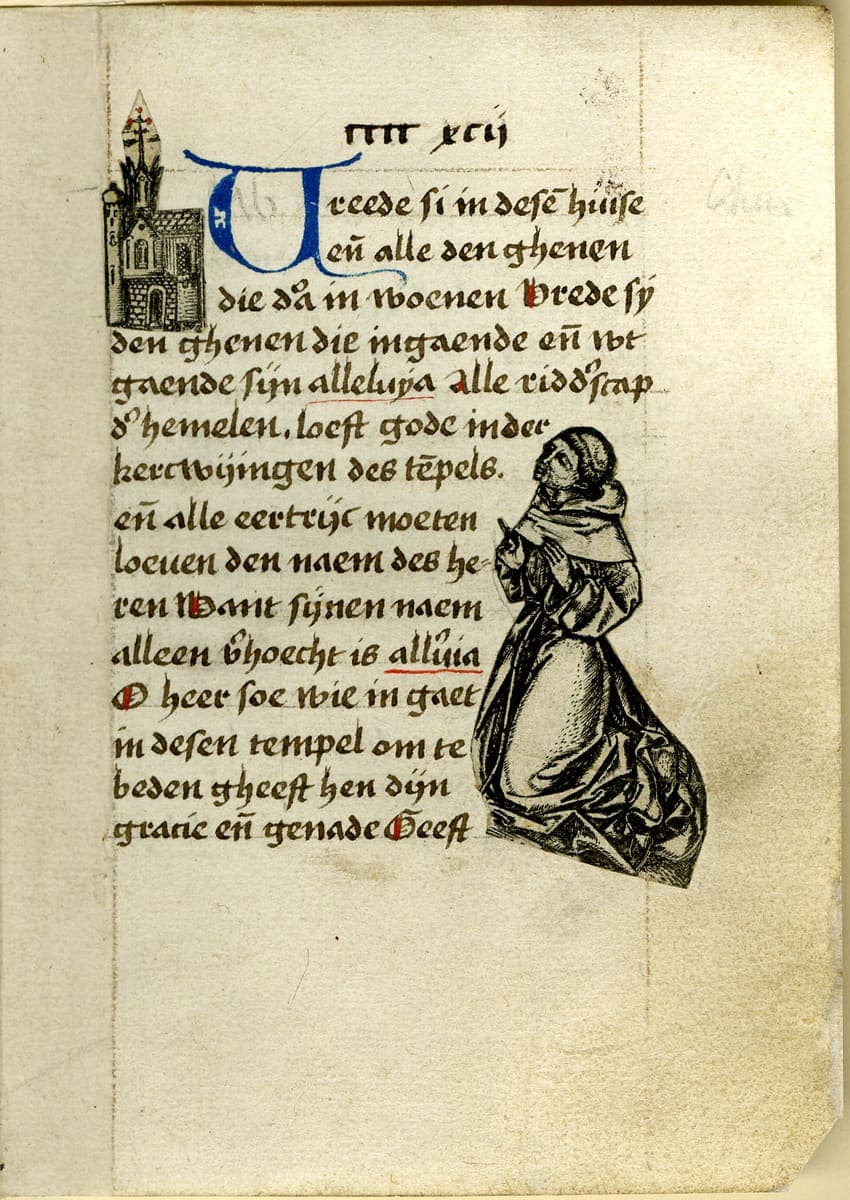 cccc xcij
Vreede si in desē huuse
eñ alle den ghenen
die d'a in woenen Vrede sy
den ghenen die ingaende eñ wt
gaende sijn alleluya Alle ridd'scap
d' hemelen. loeft gode in der
kercwijingen des tēpels.
eñ alle eertrijc moeten
loeuen den naem des he-
ren Want sijnen naem
alleen v'hoecht is all'uia
O heer soe wie in gaet
in desen tempel om te
beden gheeft hen dijn
gracie eñ genade Geeft